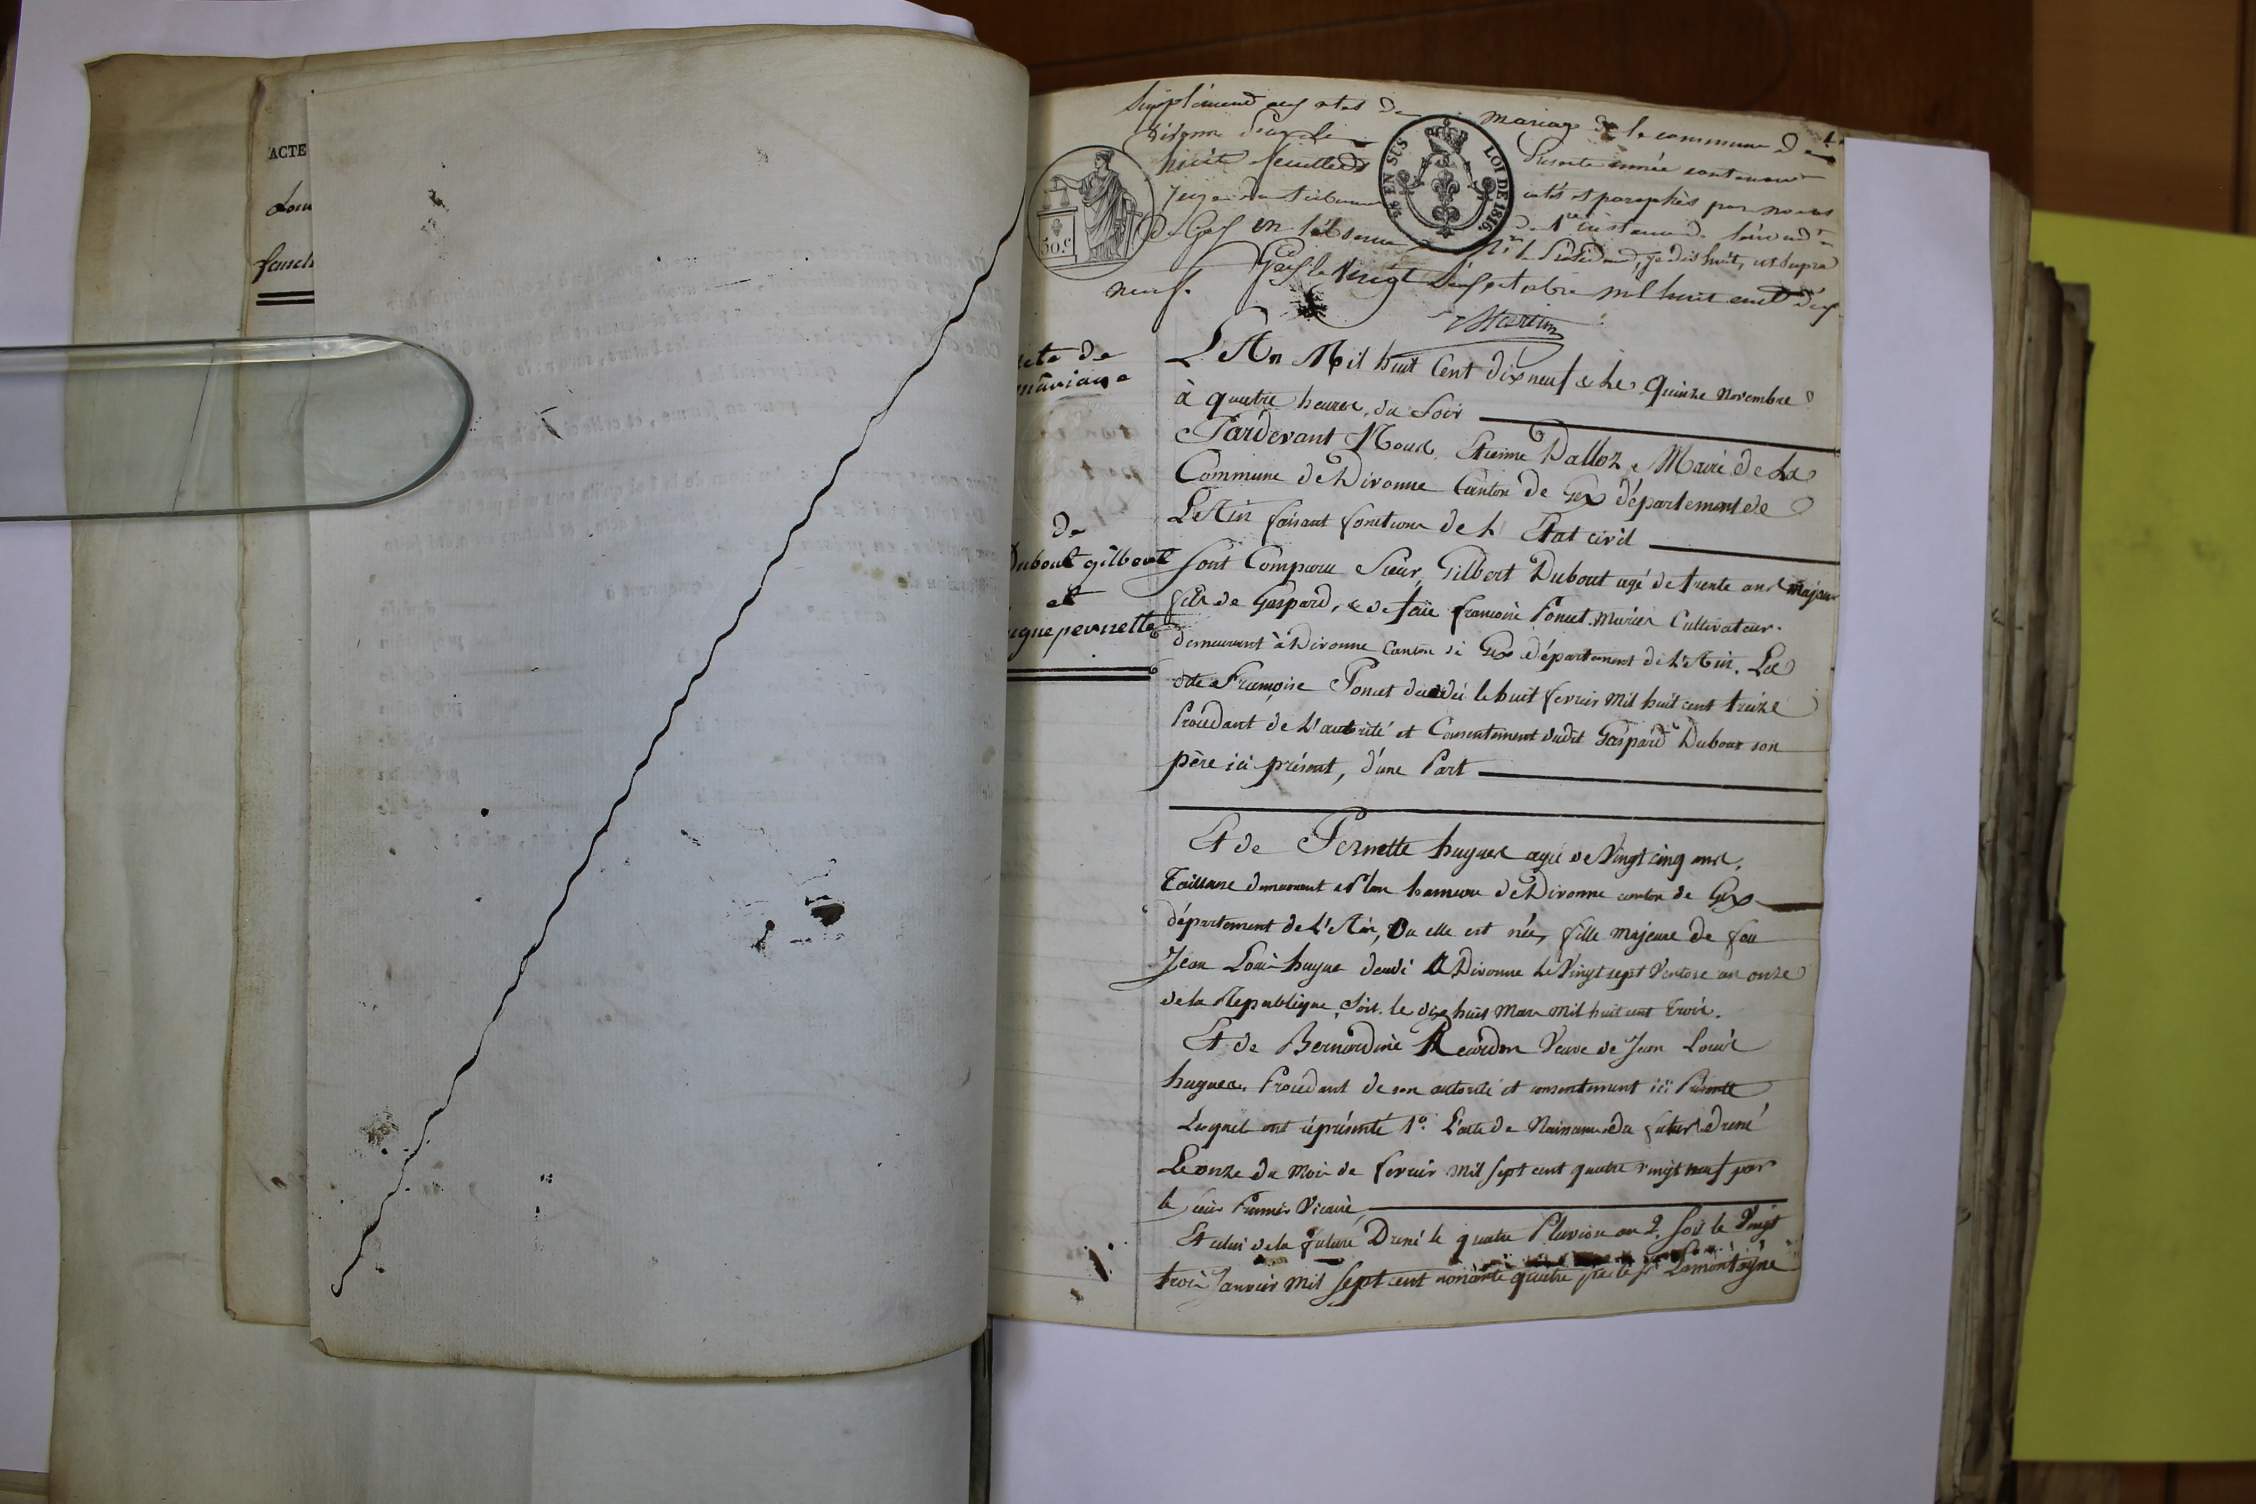 ACTE
Supplément aux actes de mariage de la commune de
Divonne pour la présente année contenant
huit feuillets cotés et paraphés par nous
juge du tribunal de 1re instance de
de Gex en l'absence de Mr le Président, je dis huit, ut supra
Gex le vingt deux octobre mil huit cent dix
neuf.
Martin
50 c.
EN SUS
LOI DE 1816.
acte de
mariage
de
Dubout gilbert
et
hugue pernette
L'An Mil huit Cent dix neuf & Le quinze novembre
à quatre heures du Soir
Pardevant Nous Etienne Dalloz Maire de La
Commune de Divonne Canton de Gex département de
L'Ain faisant fonctions de L'Etat civil
Sont Comparu Sieur Gilbert Dubout agé de trente ans majeur
fils de Gaspard, & de faüe francoise Poncet Mariés Cultivateur.
demeurant à Divonne Canton de Gex département de L'Ain. La
dite Françoise Poncet décédée le huit fevrier Mil huit cent treize
Procedant de L'autorité et Consentement dudit Gaspard Dubout son
père ici présent, d'une Part
Et de Pernette hugues agée de Vingt cinq ans,
Tailleuse demeurant à Plan hameau de Divonne canton de Gex
département de L'Ain, Ou elle est née, fille majeure de feu
Jean Louis hugue décédé A Divonne Le Vingt sept Ventose an onze
de la Republique, Soit le dix huit Mars Mil huit cent trois.
Et de Bernardine Veuve de Jean Louis
hugues. Procedant de son autorité et consentement ici Présente
Lesquels ont représenté 1°. L'acte de Naissance du futur Dressé
Le onze du Mois de fevrier Mil Sept cent quatre vingt neuf par
le Sieur Vicaire,
Et celui de la future Dressé le quatre Pluviose an 2. Soit le Vingt
trois Janvier Mil Sept cent nonante quatre par le Sr Lamontagne